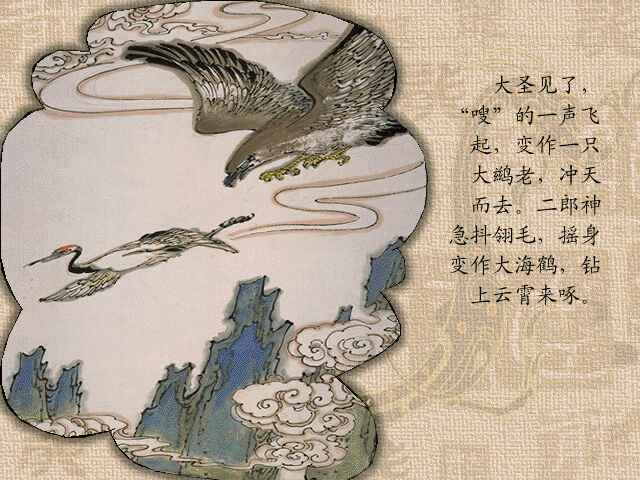 大圣见了，
“嗖”的一声飞
起，变作一只
大鹚老，冲天
而去。二郎神
急抖翎毛，摇身
变作大海鹤，钻
上云霄来啄。